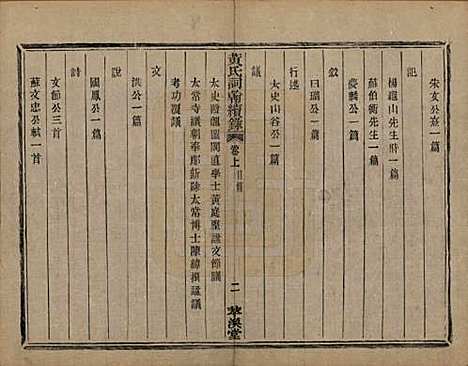 朱文公熹一篇
記
楊龜山先生一篇
蘇伯衡先生一篇
夢麟公一篇
敘
曰瑞公一篇
行述
太史山谷公一篇
議
黃氏詞翰續錄 卷上 目錄 二 萃渙堂
太史館龍圖閣直學士黃庭堅諡文節議
太常寺議朝奉郎新除太常博士陳緯撰諡議
考功覆議
文
洪公一篇
說
國鳳公一篇
詩
文節公三首
蘇文忠公軾一首